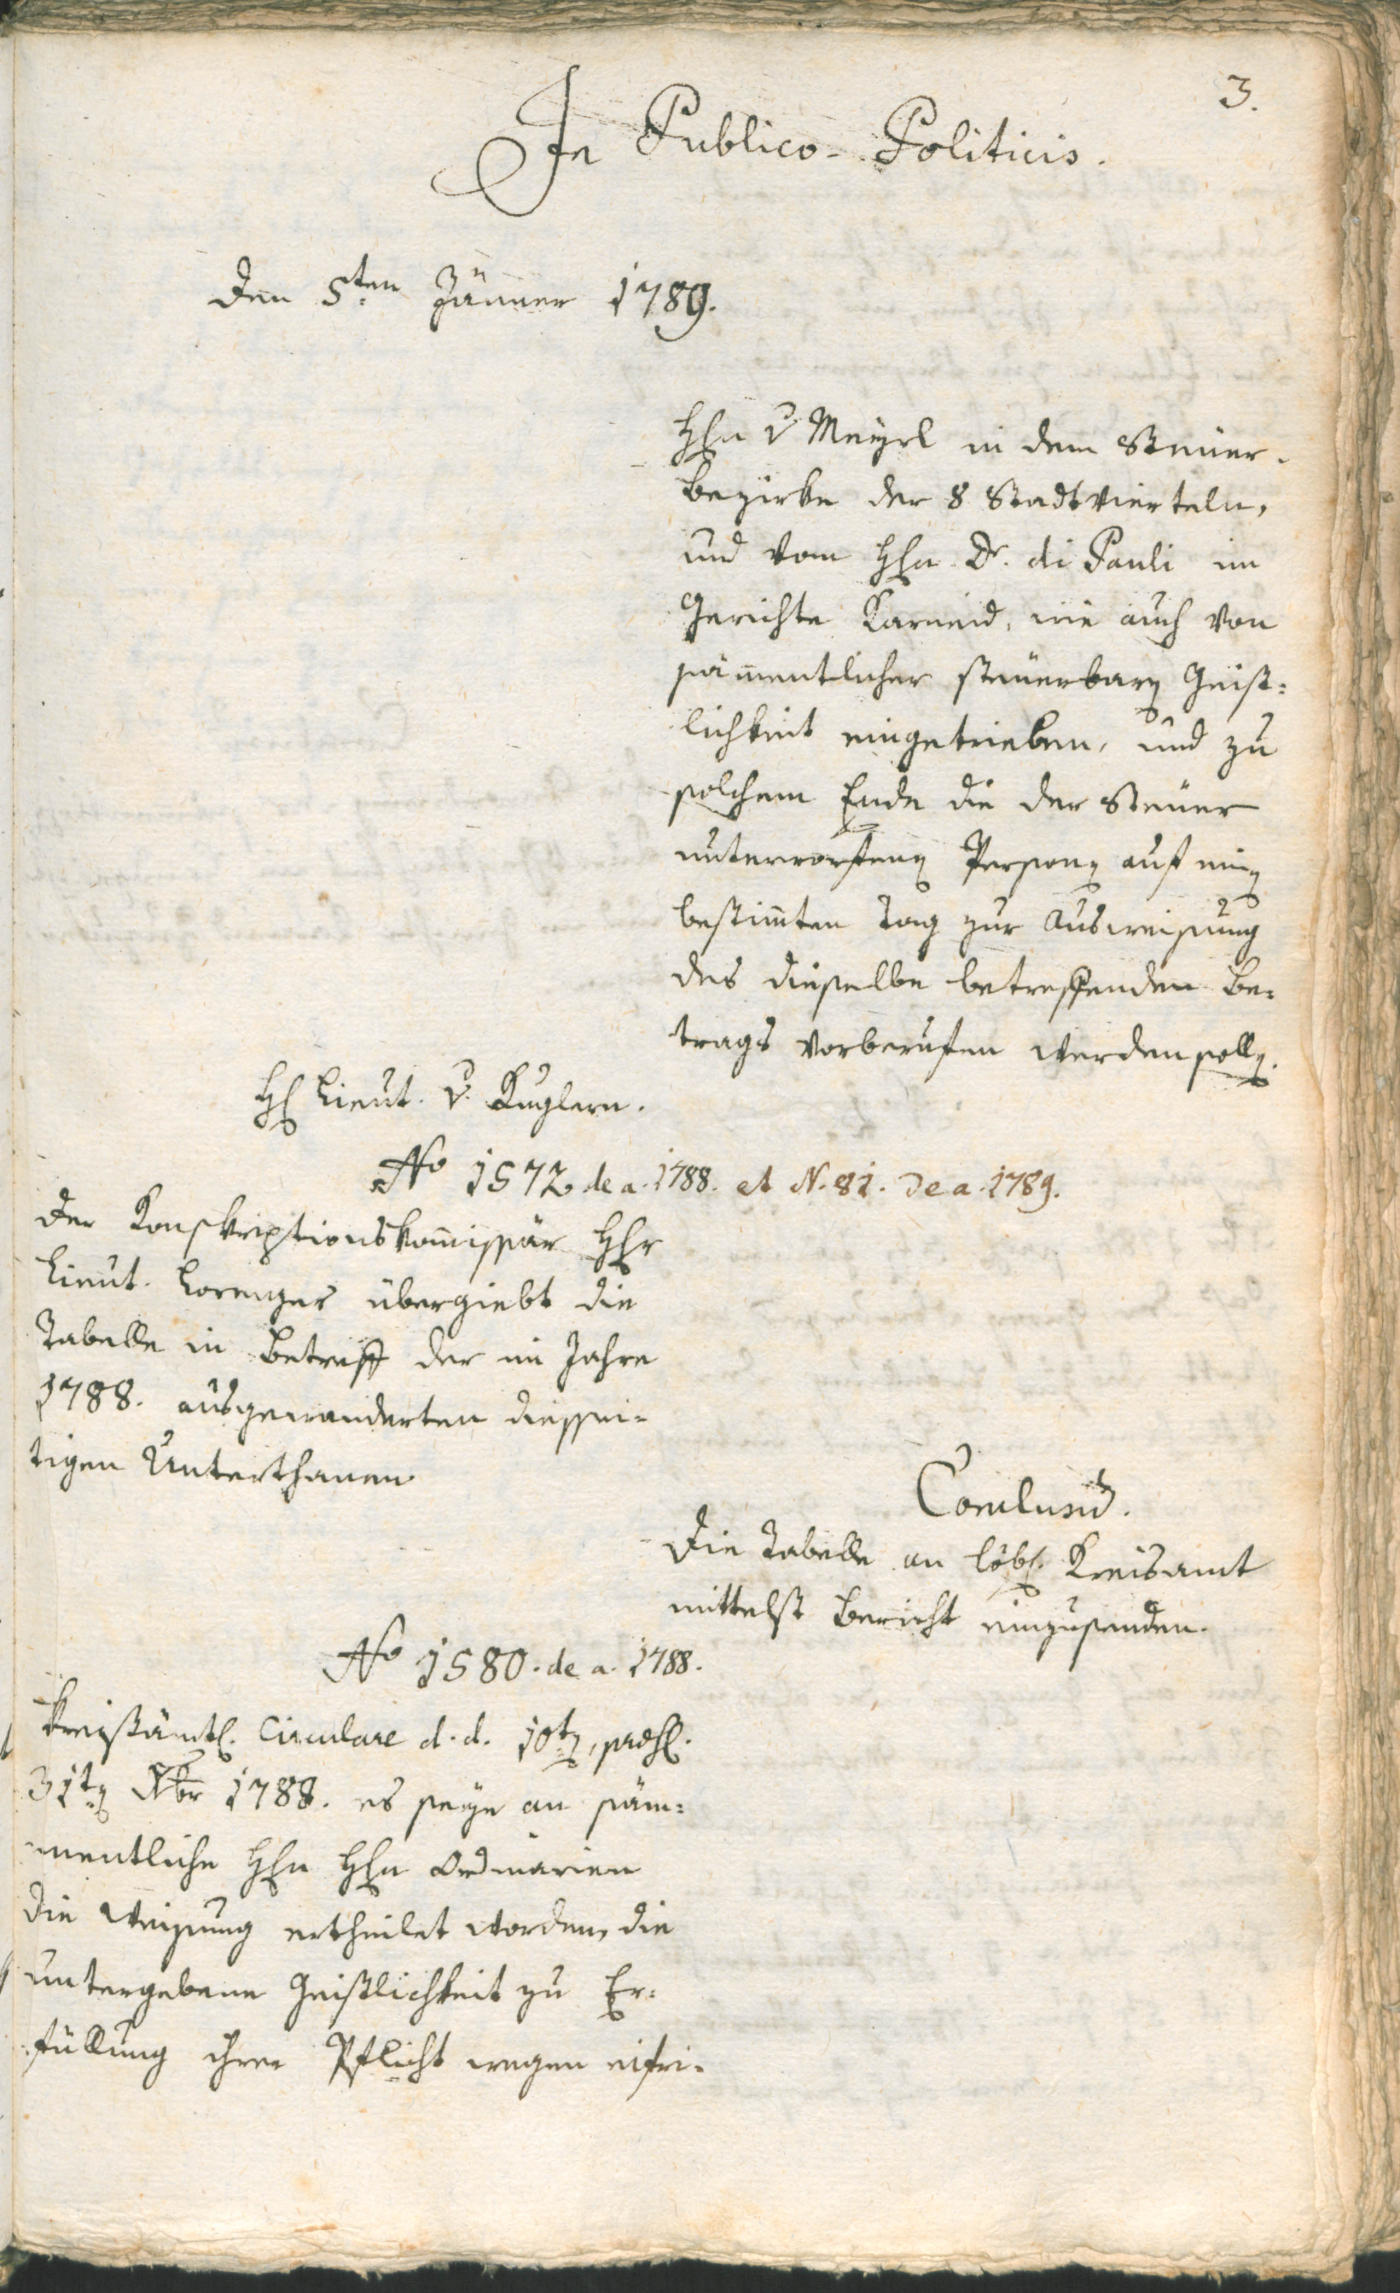 3.
In Publico-Politicis.
Den 5ten Jänner 1789.
Hhn v Mayrl in dem Steuer-
bezirke der 8 Stadtvierteln,
und vom Hhn Dr. di Pauli im
Gerichte Karneid, wie auch von
sämmentlicher steuerbaren Geist-
lichkeit eingetrieben, und zu
solchem Ende die der Steuer
unterworfenen Personen auf einen
bestimten Tag zur Ausweisung
des dieselbe betreffenden Be-
trags vorberufen werden sollen.
H Lieut. v. Kuglern.
No 1572 de a. 1788. et N. 81. de a. 1789.
Der Konskriptionskommissär Hhr
Lieut. Lorenger übergiebt die
Tabelle in Betreff der im Jahre
1788. ausgewanderten diessei-
tigen Unterthanen
Conclusum.
Die Tabelle an löbl. Kreisamt
mittelst Bericht einzusenden.
No 1580. de a. 1788.
Kreisämtl. Circulare d. d. 10ten, präs.
31ten Xbr 1788. es seye an säm-
mentliche Hhn Hhn Ordinarien
die Weisung ertheilet worden, die
untergebene Geistlichkeit zu Er-
füllung ihrer Pflicht wegen eifri-